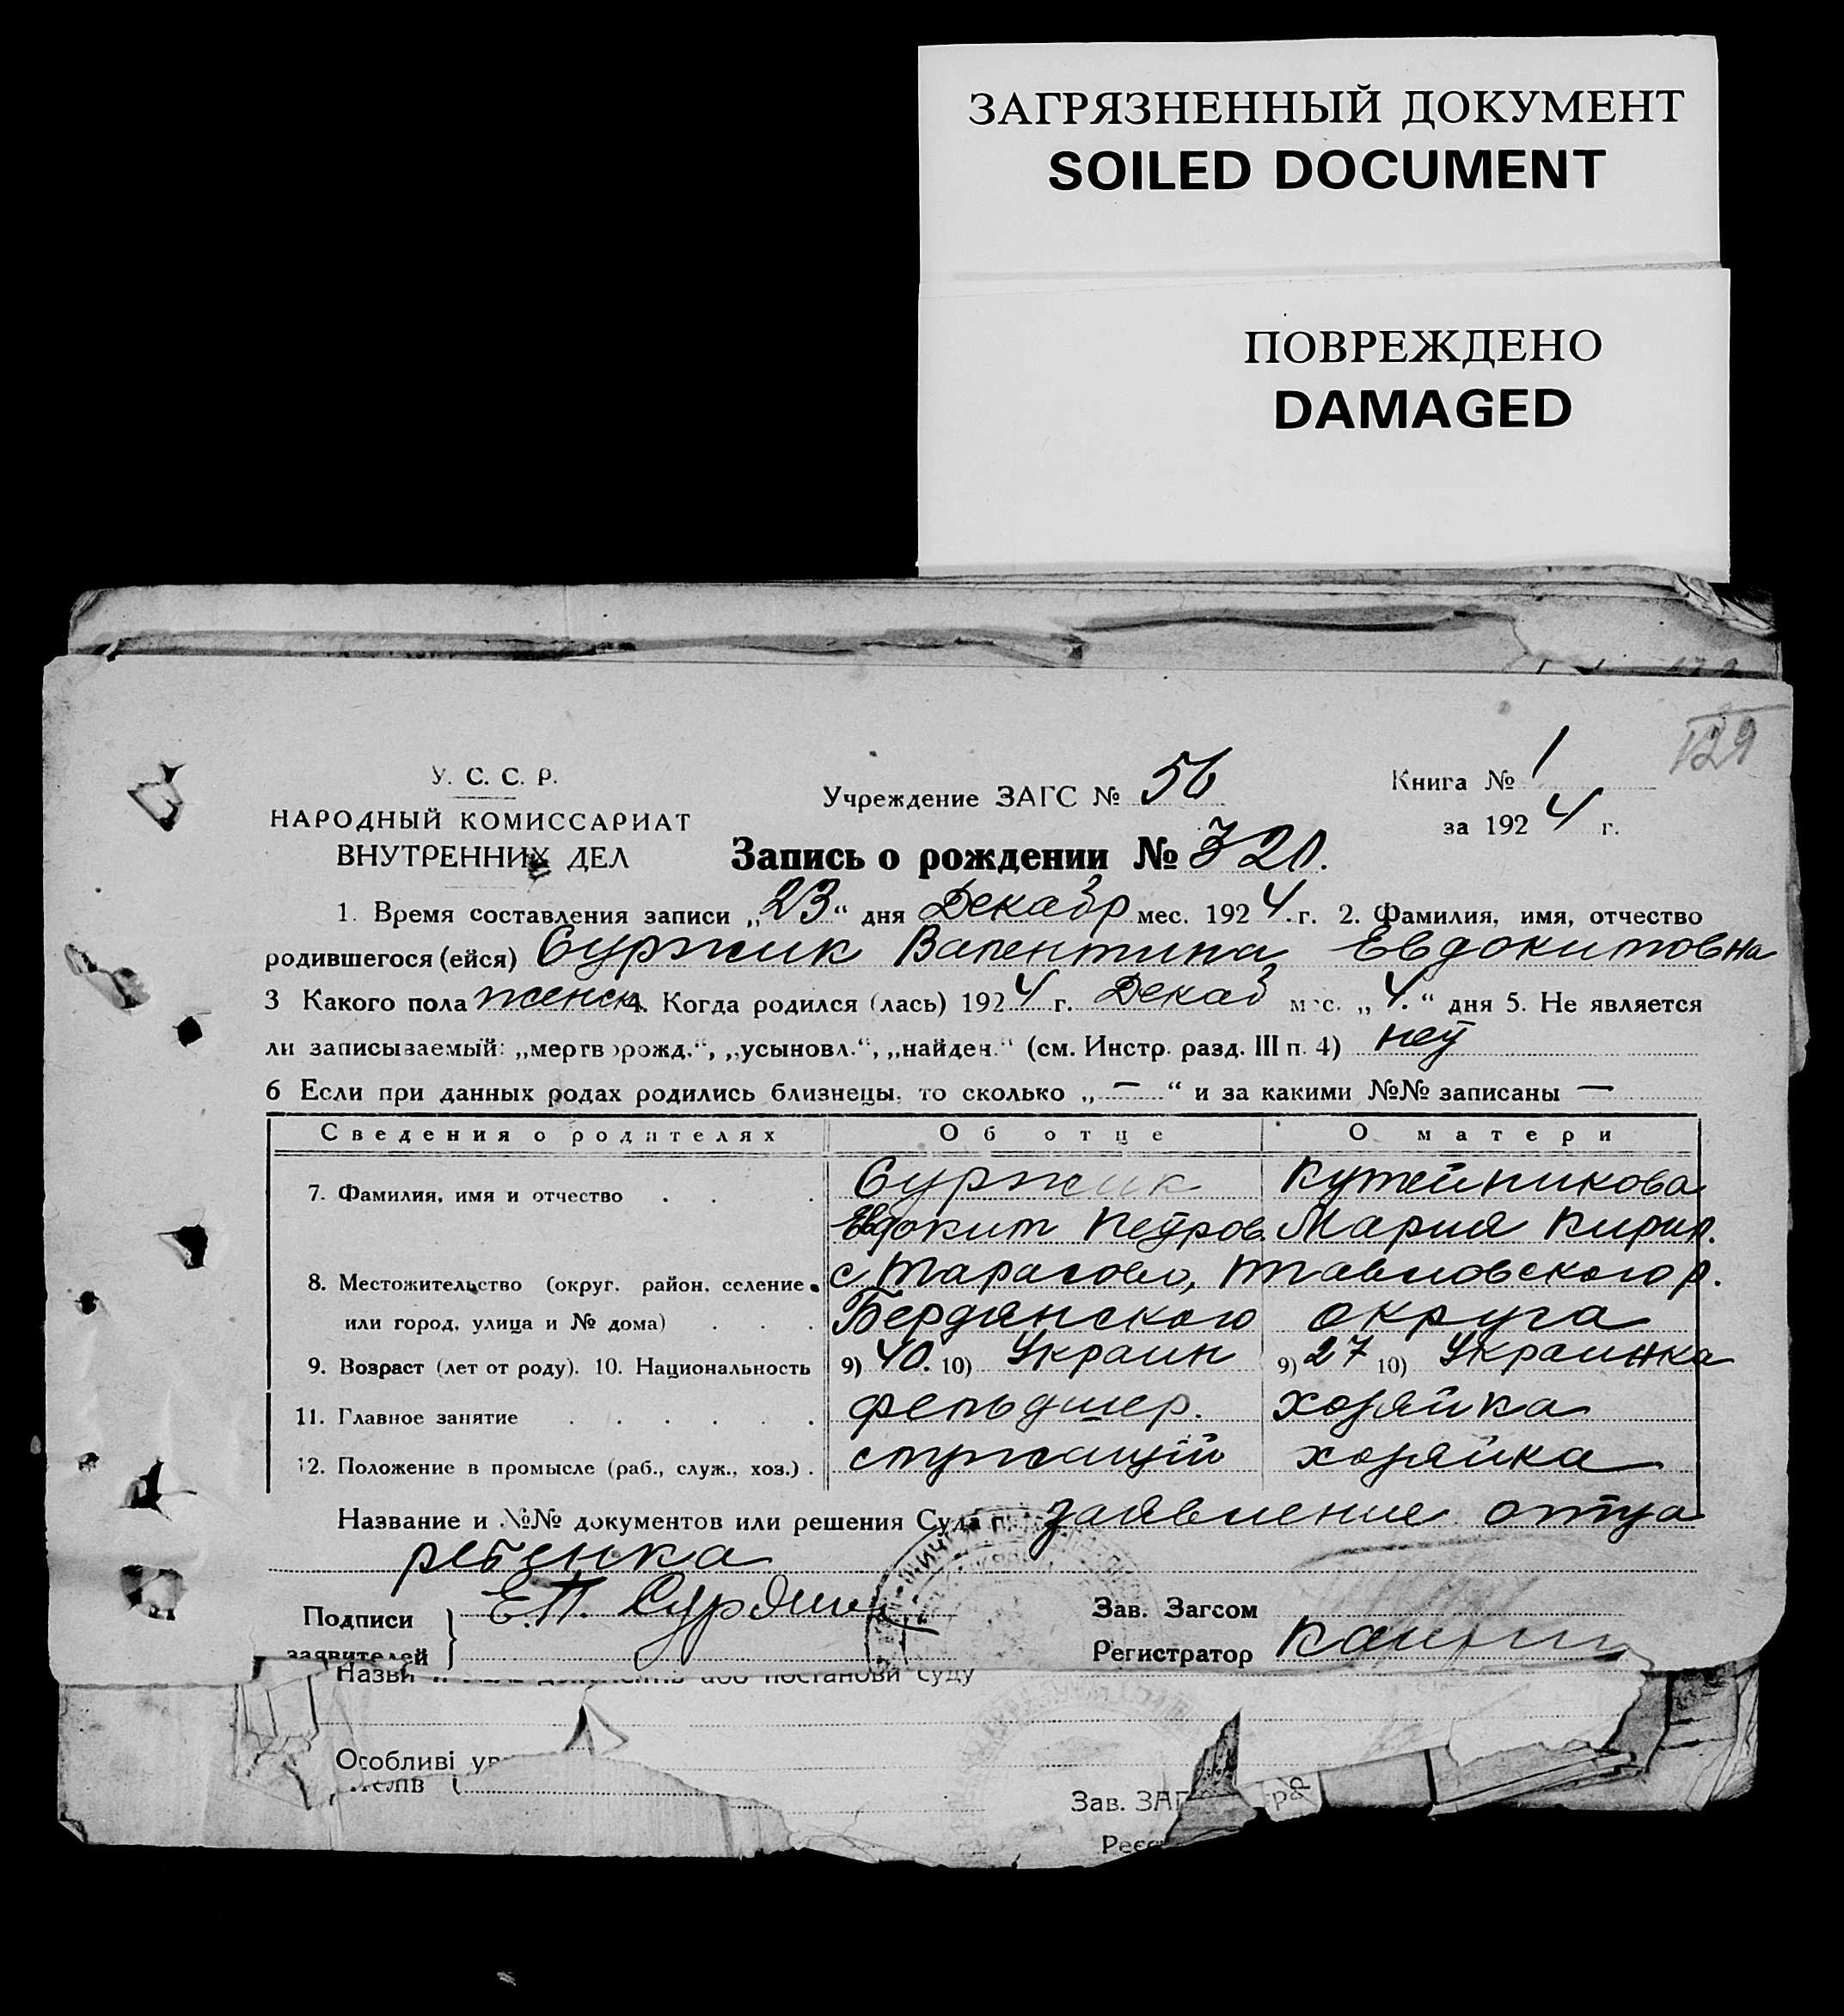 ЗАГРЯЗНЕННЫЙ ДОКУМЕНТ
SOILED DOCUMENT
ПОВРЕЖДЕНО
DAMAGED
129
У. С. С. Р.
НАРОДНЫЙ КОМИССАРИАТ
ВНУТРЕННИХ ДЕЛ
Учреждение ЗАГС № 56
Книга № 1
за 1924 г.
Запись о рождении № 320.
1. Время составления записи „23“ дня Декабр мес. 1924 г. 2. Фамилия, имя, отчество
родившегося (ейся) Суржик Валентина Евдокимовна
3 Какого пола женск 4. Когда родился (лась) 1924 г. Декаб мес. „4.“ дня 5. Не является
ли записываемый: „мертворожд.“, „усыновл.“, „найден.“ (см. Инстр. разд. III п. 4) нет
6 Если при данных родах родились близнецы, то сколько „—“ и за какими №№ записаны —
Сведения о родителях Об отце О матери
7. Фамилия, имя и отчество Суржик Кутейникова
Евдоким Петров. Мария Кирил.
8. Местожительство (округ, район, селение с. Тарасовка, р.
или город, улица и № дома) Бердянского округа
9. Возраст (лет от роду). 10. Национальность 9) 40. 10) Украин 9) 27 10) Украинка
11. Главное занятие фельдшер. хозяйка
12. Положение в промысле (раб., служ., хоз.) служащий хозяйка
Название и №№ документов или решения Суда заявление отца
ребенка
Подписи
заявителей
Е.П. Суржик
Зав. Загсом
Регистратор
Назви або постанови суду
Особливі
Зав. ЗАГ